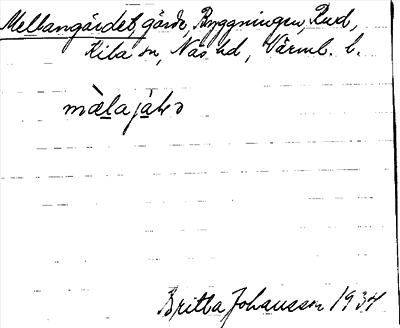 Mellangärdet, gärde, Byggningen, Rud,
Kila sn, Näs hd, Värml. l.
mäl̀ajàḷə
Britta Johansson 1934